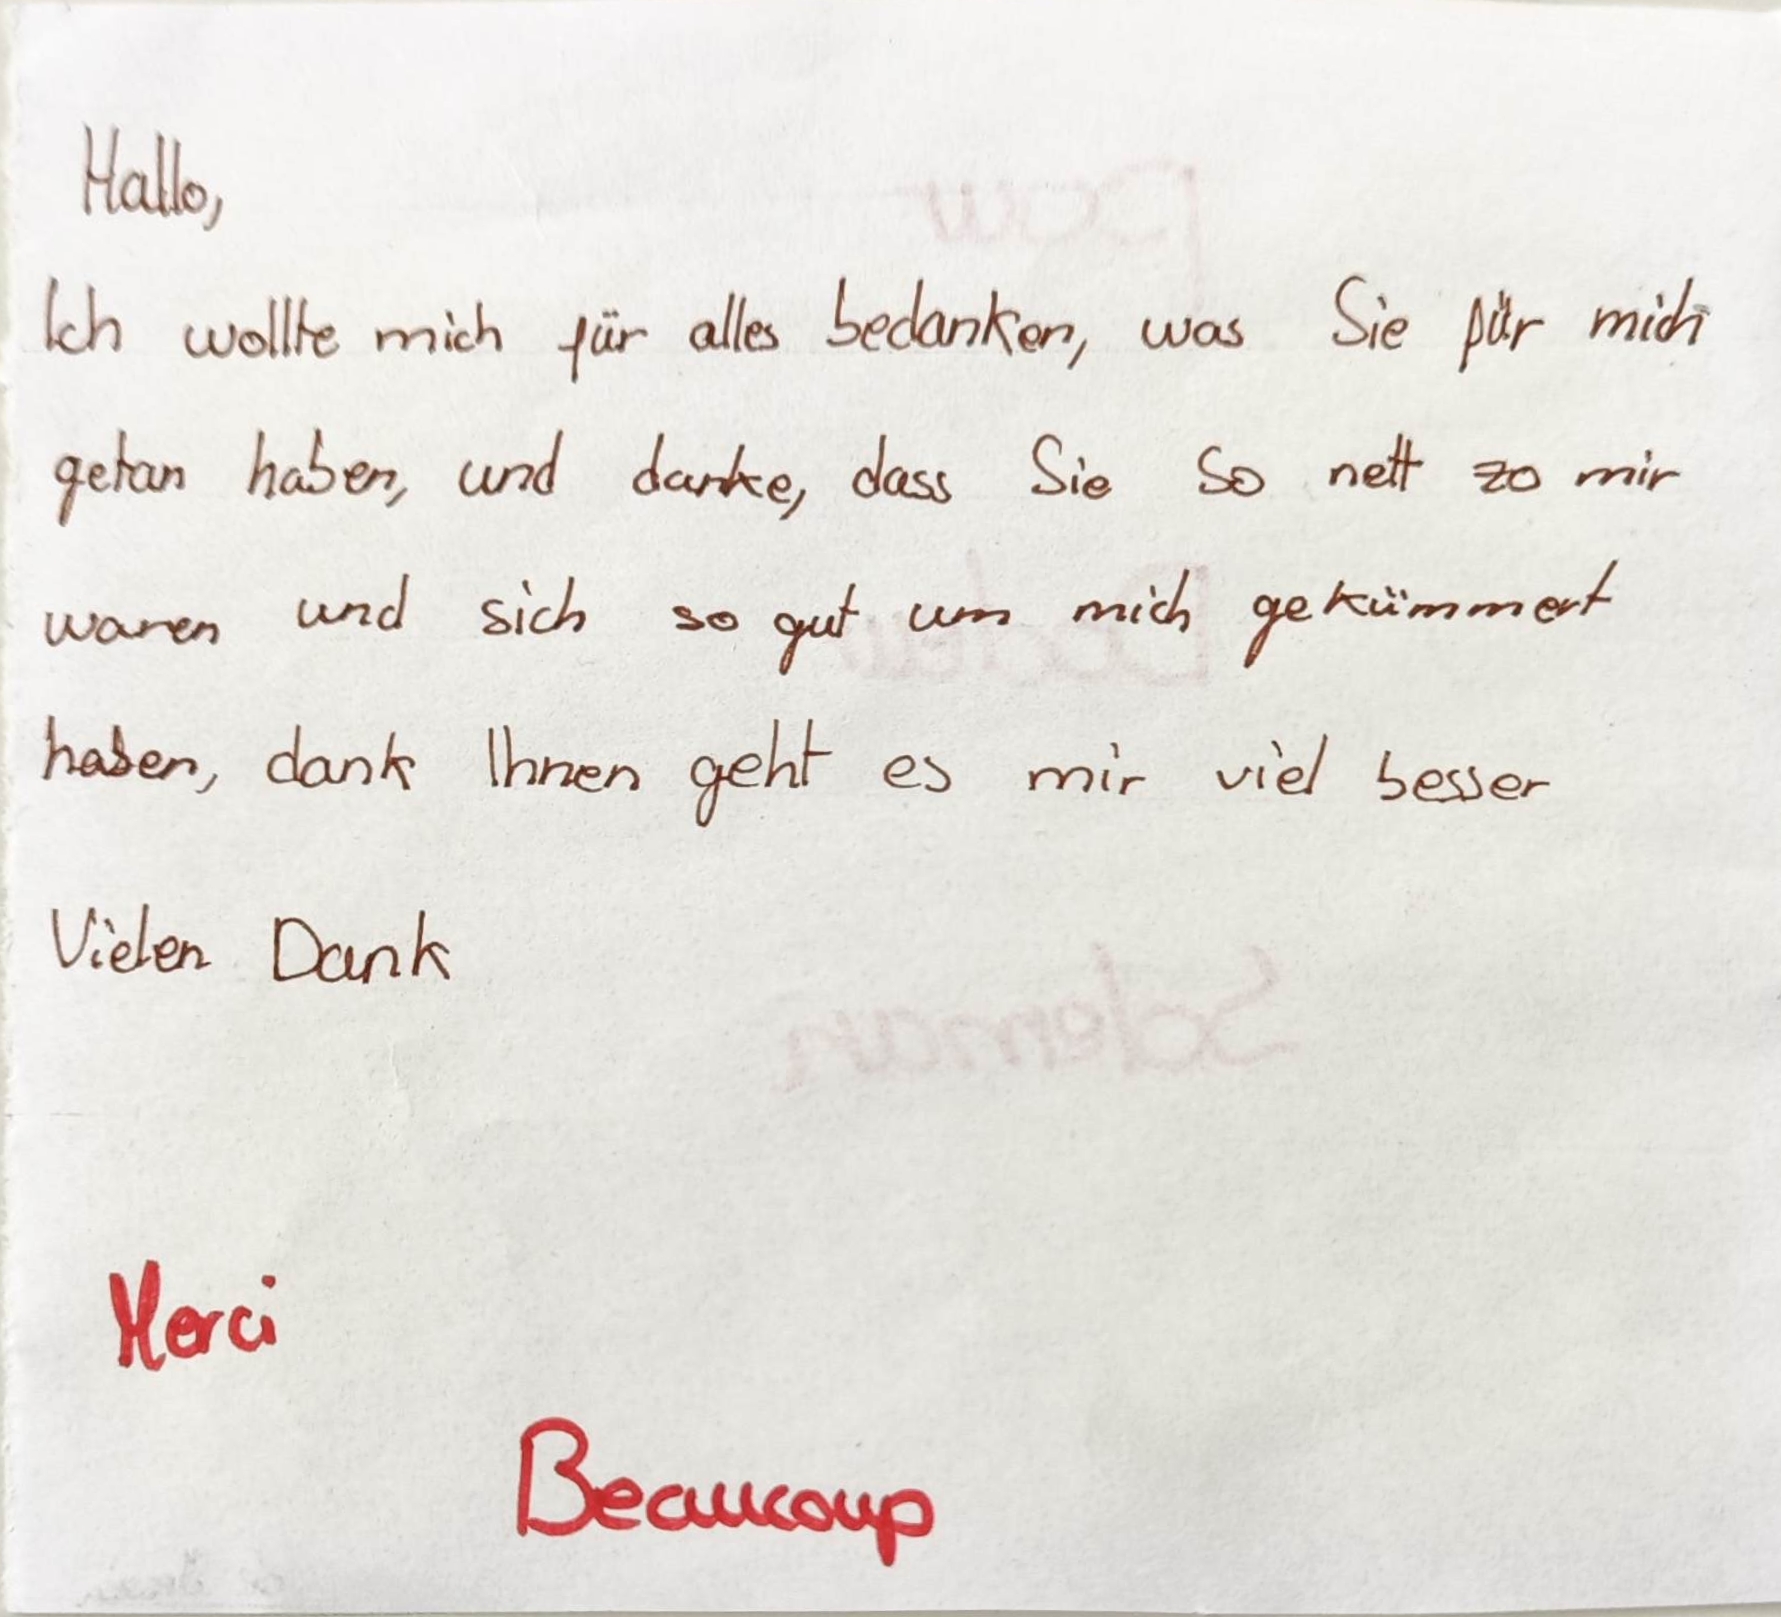 Hallo,
Ich wollte mich für alles bedanken, was Sie für mich
getan haben, und danke, dass Sie so nett zo mir
waren und sich so gut um mich gekümmert
haben, dank Ihnen geht es mir viel besser
Vielen Dank
Merci
Beaucoup